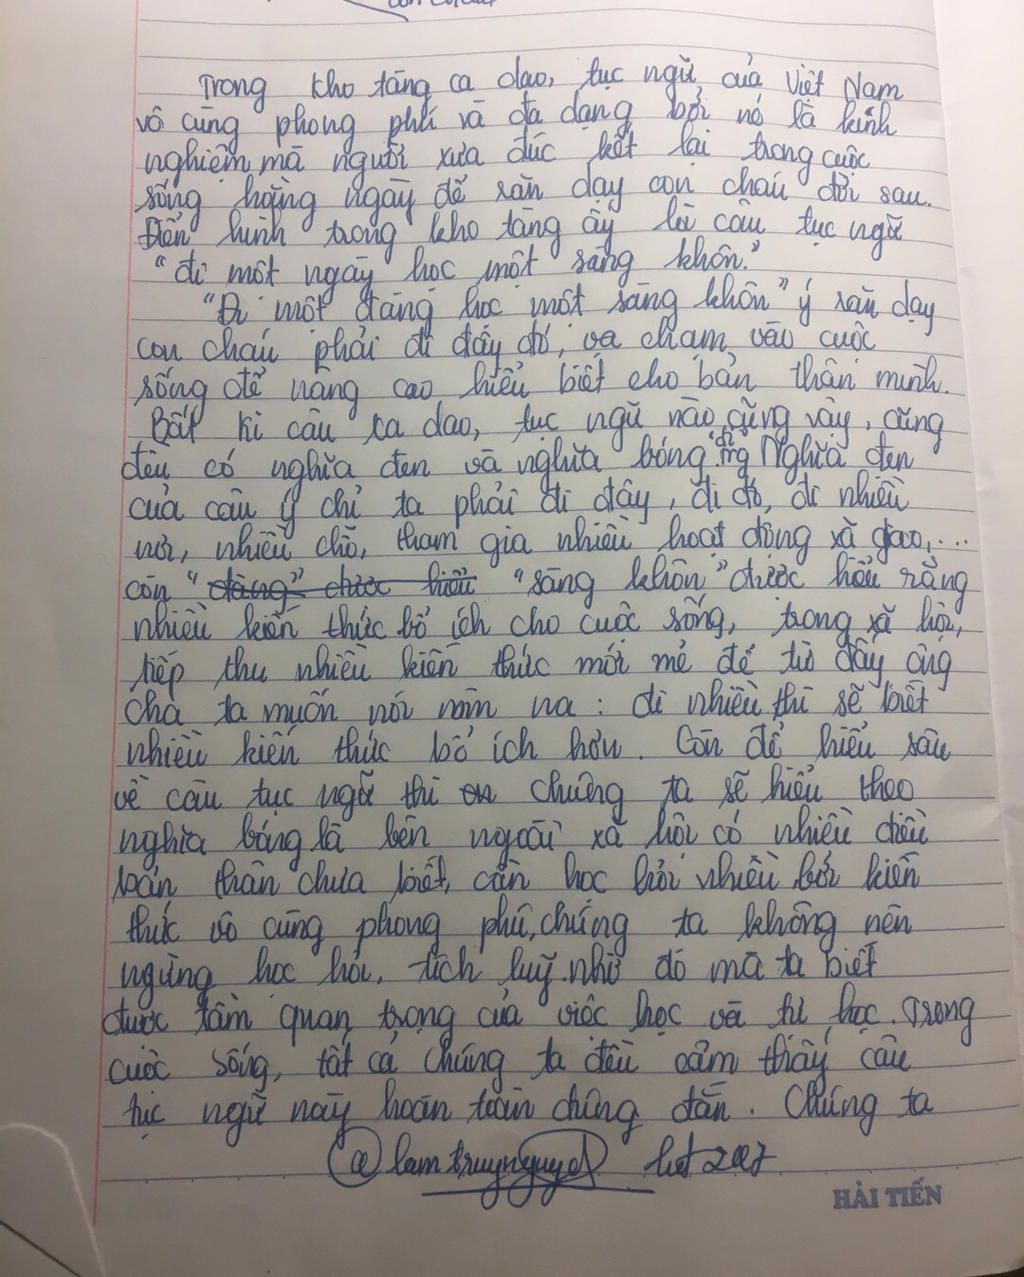 Trong kho tàng ca dao, tục ngữ của Việt Nam
vô cùng phong phú và đa dạng bởi nó là kinh
nghiệm mà người xưa đúc kết lại trong cuộc
sống hằng ngày để răn dạy con cháu đời sau.
Điển hình trong kho tàng ấy là câu tục ngữ
"đi một ngày học một sàng khôn."
"Đi một đàng học một sàng khôn" ý răn dạy
con cháu phải đi đây đó, va chạm vào cuộc
sống để nâng cao hiểu biết cho bản thân mình.
Bất kì câu ca dao, tục ngữ nào cũng vậy, cũng
đều có nghĩa đen và nghĩa bóng. Nghĩa đen
của câu ý chỉ ta phải đi đây, đi đó, đi nhiều
nơi, nhiều chỗ, tham gia nhiều hoạt động xã giao,...
còn "đàng" được hiểu "sàng khôn" được hiểu rằng
nhiều kiến thức bổ ích cho cuộc sống, trong xã hội,
tiếp thu nhiều kiến thức mới mẻ để từ đấy ông
cha ta muốn nói nôm na: đi nhiều thì sẽ biết
nhiều kiến thức bổ ích hơn. Còn để hiểu sâu
về câu tục ngữ thì chúng ta sẽ hiểu theo
nghĩa bóng là bên ngoài xã hội có nhiều điều
bản thân chưa biết, cần học hỏi nhiều bởi kiến
thức vô cùng phong phú, chúng ta không nên
ngừng học hỏi, tích luỹ. nhờ đó mà ta biết
được tầm quan trọng của việc học và tự học. Trong
cuộc sống, tất cả chúng ta đều cảm thấy câu
tục ngữ này hoàn toàn đúng đắn. Chúng ta
@lamtruynguyet 2007
HẢI TIẾN